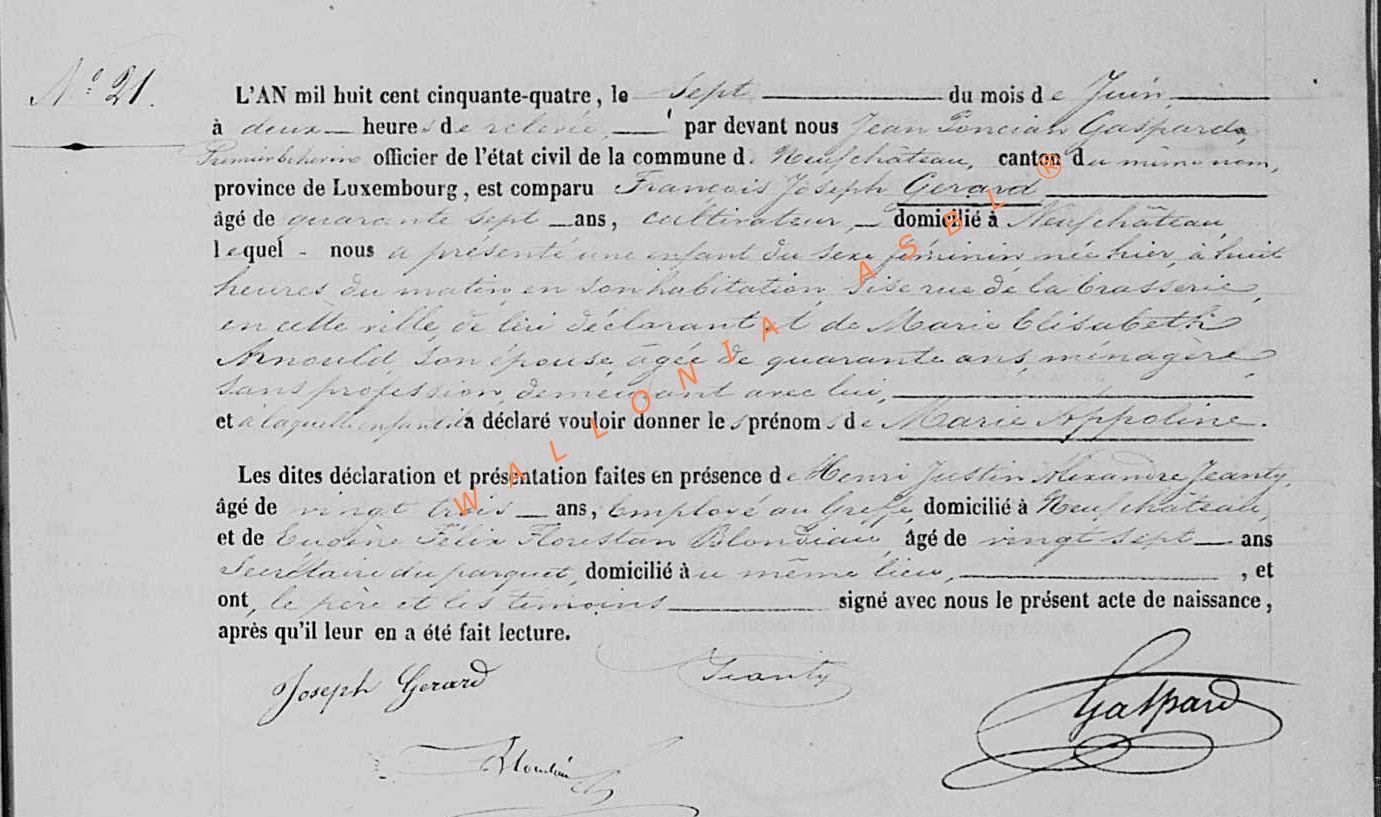 N° 21.
L'AN mil huit cent cinquante-quatre, le sept du mois de Juin,
à deux heures de relevée, par devant nous Jean Poncian Gaspard,
Premier Echevin officier de l'état civil de la commune de Neufchâteau, canton du même nom,
province de Luxembourg, est comparu François Joseph Gerard
âgé de quarante sept ans, cultivateur, domicilié à Neufchâteau,
lequel nous a présenté une enfant du sexe féminin née hier, à huit
heures du matin, en son habitation, sise rue de la brasserie,
en cette ville, de lui déclarant et de Marie Elisabeth
Arnould, son épouse, âgée de quarante ans, ménagère
sans profession, demeurant avec lui,
et à laquelle enfant il a déclaré vouloir donner les prénoms de Marie Appoline.
Les dites déclaration et présentation faites en présence de Henri Justin Alexandre Jeanty,
âgé de vingt trois ans, Employé au Greffe, domicilié à Neufchâteau,
et de Eugène Félix Florestan Blondiau, âgé de vingt sept ans
Secrétaire du parquet, domicilié au même lieu, , et
ont, le père et les témoins signé avec nous le présent acte de naissance,
après qu'il leur en a été fait lecture.
Joseph Gerard
Jeanty
Gaspard
WALLONIA ASBL ®